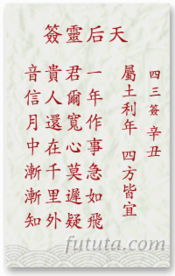 天后靈簽
四三簽 辛丑
屬土利年 四方皆宜
一年作事急如飛
君爾寬心莫遲疑
貴人還在千里外
音信月中漸漸知
fututa.com